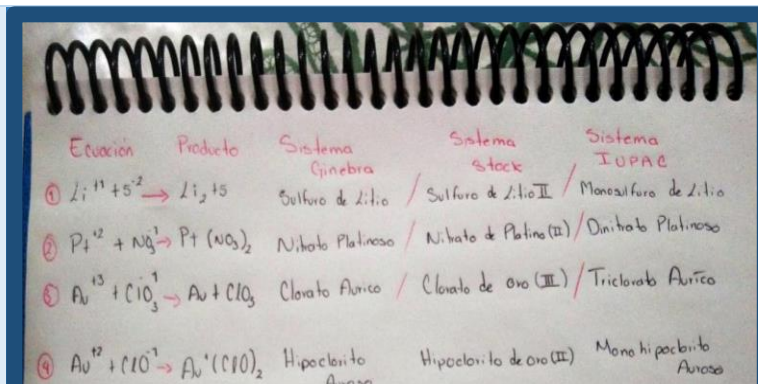 Ecuación Producto Sistema Ginebra Sistema Stock Sistema IUPAC
① Li⁺¹ + S⁻² → Li₂+S Sulfuro de Litio / Sulfuro de Litio II / Monosulfuro de Litio
② Pt⁺² + NO₃⁻¹ → Pt (NO₃)₂ Nitrato Platinoso / Nitrato de Platino (II) / Dinitrato Platinoso
③ Au⁺³ + ClO₃⁻¹ → Au + ClO₃ Clorato Aurico / Clorato de oro (III) / Triclorato Aurico
④ Au⁺² + ClO⁻¹ → Au⁺(ClO)₂ Hipoclorito Hipoclorito de oro (II) Mono hipoclorito Auroso